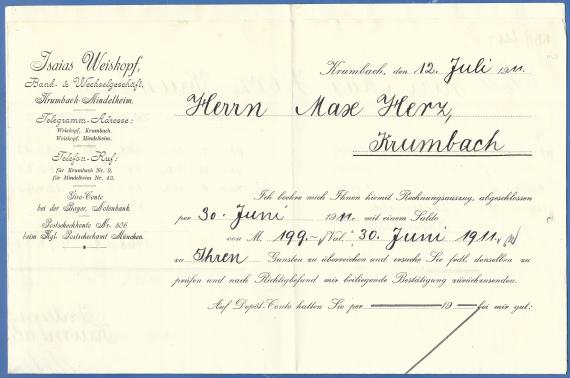 Isaias Weiskopf,
Bank- & Wechselgeschäft,
Krumbach-Mindelheim.
Telegramm-Adresse:
Weiskopf, Krumbach.
Weiskopf, Mindelheim.
Telefon-Ruf:
für Krumbach Nr. 9,
für Mindelheim Nr. 43.
Giro-Conto
bei der Bayer. Notenbank.
Postscheckkonto Nr. 806
beim Kgl. Postscheckamt München.
Krumbach, den 12. Juli 1911.
Herrn Max Herz,
Krumbach
Ich beehre mich Ihnen hiemit Rechnungsauszug, abgeschlossen
per 30. Juni 1911. mit einem Saldo
von M. 199.- Val. 30. Juni 1911.
zu Ihren Gunsten zu überreichen und ersuche Sie frdl. denselben zu
prüfen und nach Richtigbefund mir beiliegende Bestätigung zurückzusenden.
Auf Depôt-Conto hatten Sie per 19 bei mir gut: